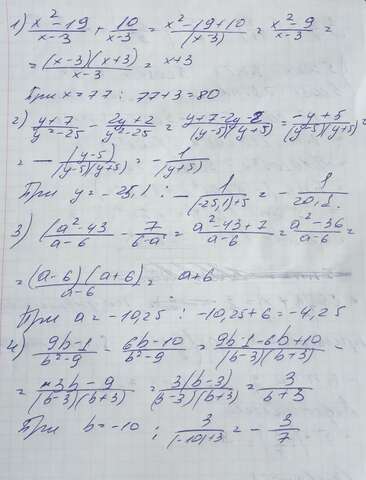 1) (x²-19)/(x-3) + 10/(x-3) = (x²-19+10)/(x-3) = (x²-9)/(x-3) =
= (x-3)(x+3)/(x-3) = x+3
При x = 77 : 77+3=80
2) (y+7)/(y²-25) - (2y+2)/(y²-25) = (y+7-2y-2)/((y-5)(y+5)) = (-y+5)/((y-5)(y+5)) =
= - (y-5)/((y-5)(y+5)) = - 1/(y+5)
При y = -25,1 : - 1/((-25,1)+5) = - 1/20,1.
3) (a²-43)/(a-6) - 7/(6-a) = (a²-43+7)/(a-6) = (a²-36)/(a-6) =
= (a-6)(a+6)/(a-6) = a+6
При a = -10,25 : -10,25+6 = -4,25
4) (9b-1)/(b²-9) - (6b-10)/(b²-9) = (9b-1-6b+10)/((b-3)(b+3)) -
= (3b-9)/((b-3)(b+3)) = 3(b-3)/((b-3)(b+3)) = 3/(b+3)
При b = -10 : 3/((-10)+3) = - 3/7